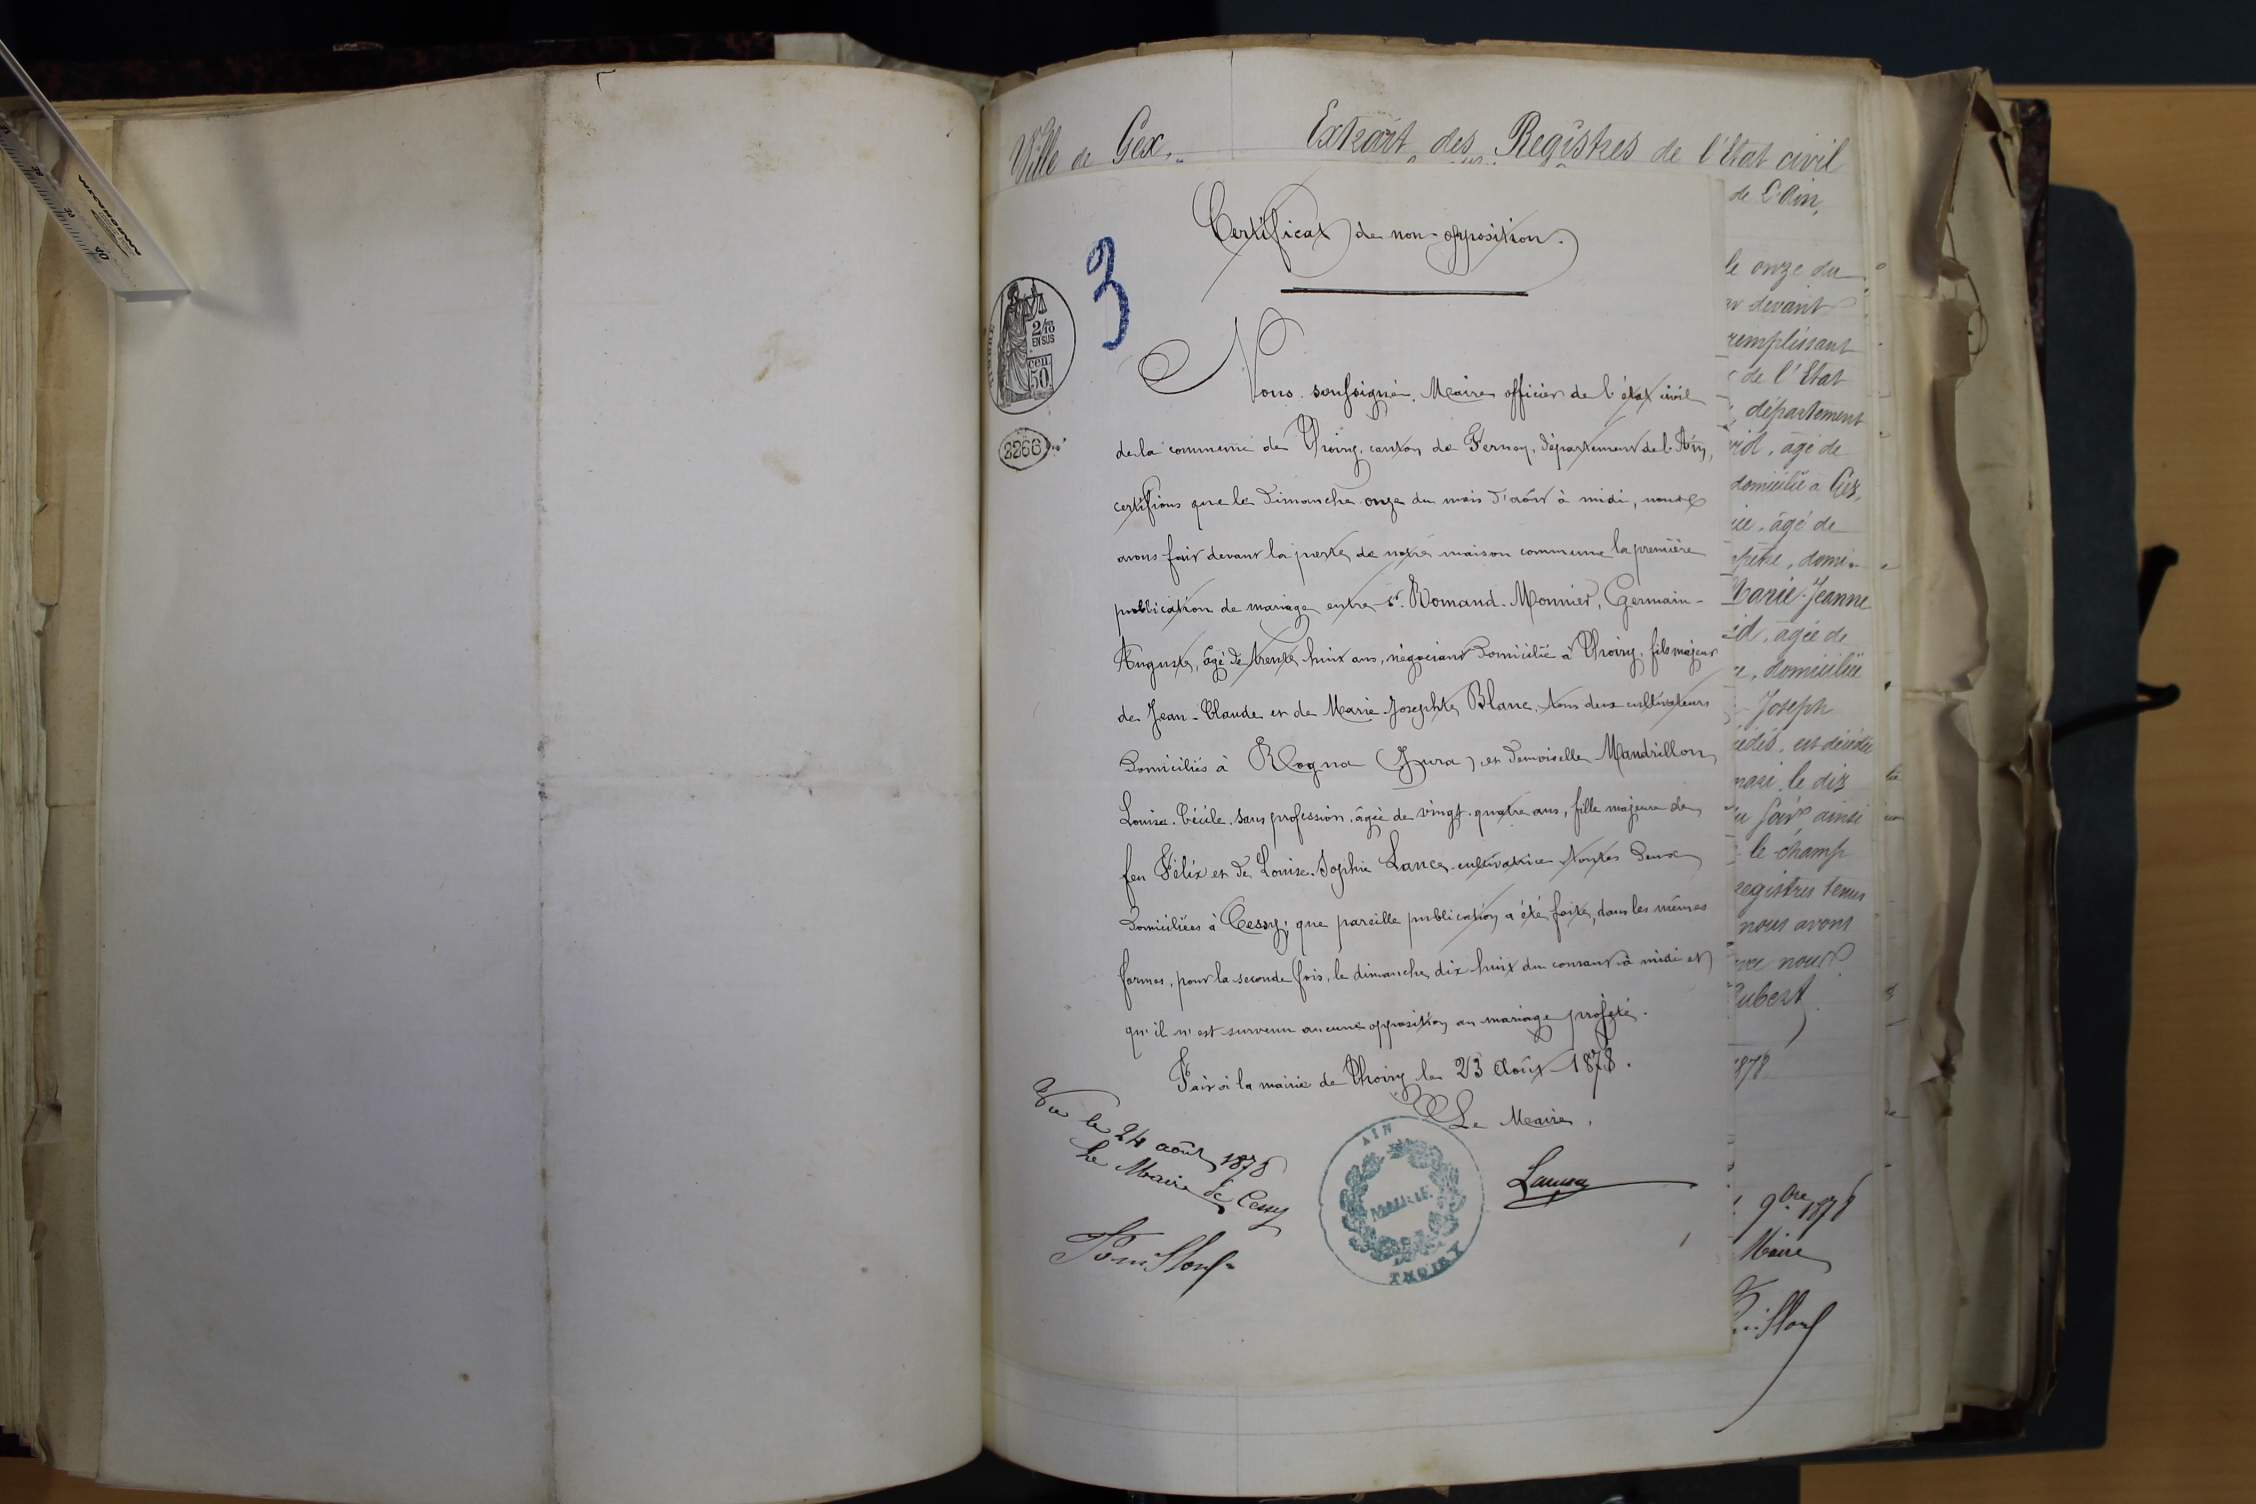 Ville de Gex.
Extrait des Registres de l'Etat civil
de l'Ain,
Certificat de non-opposition.
3
2/10
EN SUS
50
2266
Nous soussigné, Maire officier de l'état civil
de la commune de Thoiry, canton de Ferney, département de l'Ain,
certifions que le dimanche onze du mois d'août à midi, nous
avons fait devant la porte de notre maison commune la première
publication de mariage entre Sr. Romand-Monnier, Germain-
Auguste, âgé de trente huit ans, négociant domicilié à Thoiry, fils majeur
de Jean-Claude et de Marie-Josephte Blanc, tous deux cultivateurs
domiciliés à Rogna (Jura) et demoiselle Mandrillon,
Louise-Cécile, sans profession, âgée de vingt-quatre ans, fille majeure de
feu Félix et de Louise-Sophie Lance, cultivatrice toutes deux
domiciliées à Cessy; que pareille publication a été faite, dans les mêmes
formes, pour la seconde fois, le dimanche dix-huit du courant à midi et
qu'il n'est survenu aucune opposition au mariage projeté.
Fait à la mairie de Thoiry le 23 Août 1878.
Le Maire,
Vu le 24 août 1878
Le Maire de Cessy
AIN
MAIRIE
DE
THOIRY
le onze du
devant
remplissant
de l'Etat
département
âgé de
domicilié à Gex,
âgé de
domi-
Marie-Jeanne
âgée de
domiciliée
Joseph
est décédée
le dix
ainsi
le champ
registres tenus
nous avons
nous
1878
9bre 1878
Maire